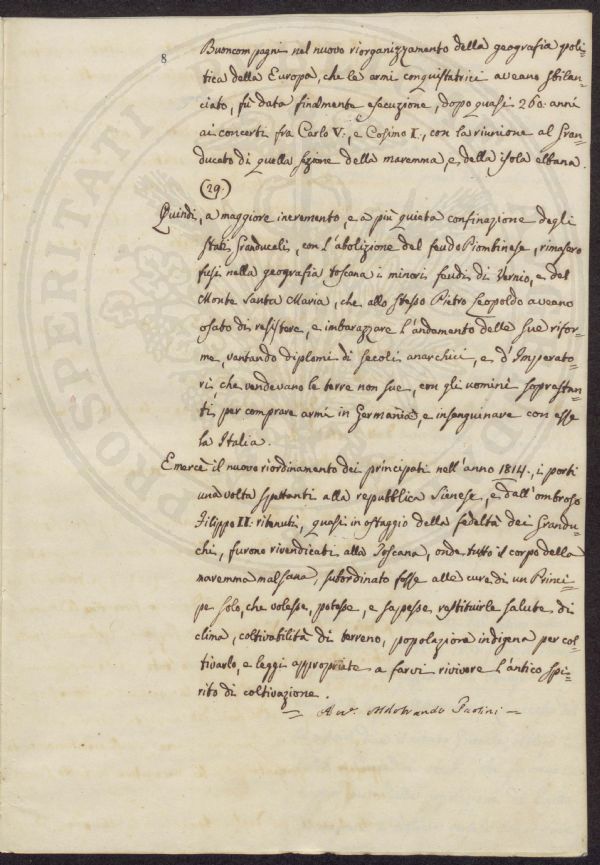 8
Buoncompagni nel nuovo riorganizzamento della geografia poli=
tica della Europa, che le armi conquistatrici aveano sbilan=
ciato, fù data finalmente esecuzione, dopo quasi 260. anni
ai concerti fra Carlo V., e Cosimo I., con la riunione al Gran=
ducato di quella sezione della maremma, e della isola elbana.
(29.)
Quindi, a maggiore incremento, e a più quieta confinazione degli
Stati Granducali, con l'abolizione del feudo Piombinese, rimasero
fusi nella geografia toscana i minori feudi di Vernio, e del
Monte Santa Maria, che allo stesso Pietro Leopoldo aveano
osato di resistere, e imbarazzare l'andamento delle sue rifor=
me, vantando diplomi di secoli anarchici, e d'Imperato=
ri, che vendevano le terre non sue, con gli uomini soprastan=
ti, per comprare armi in Germania, e insanguinare con esse
la Italia.
E mercè il nuovo riordinamento dei principati nell'anno 1814., i porti
una volta spettanti alla repubblica Sienese, e dall'ombroso
Filippo II. ritenuti, quasi in ostaggio della fedeltà dei Grandu=
chi, furono rivendicati alla Toscana, onde tutto il corpo della
maremma malsana, subordinato fosse alle cure di un Princi=
pe solo, che volesse, potesse, e sapesse restituirle salute di
clima, coltivabilità di terreno, popolazione indigena per col=
tivarlo, e leggi appropriate a farvi rivivere l'antico spi=
rito di coltivazione.
Avv. Aldobrando Paolini
PROSPERITATI